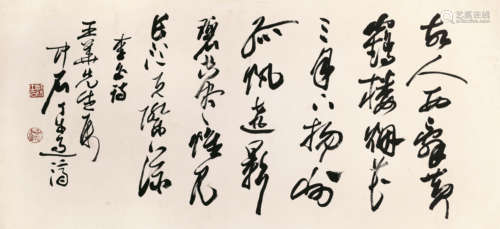 故人西辭黃
鶴樓烟花
三月下揚州
孤帆遠影
碧空盡唯見
長江天際流
李白詩
華先生
中石
易拍全球